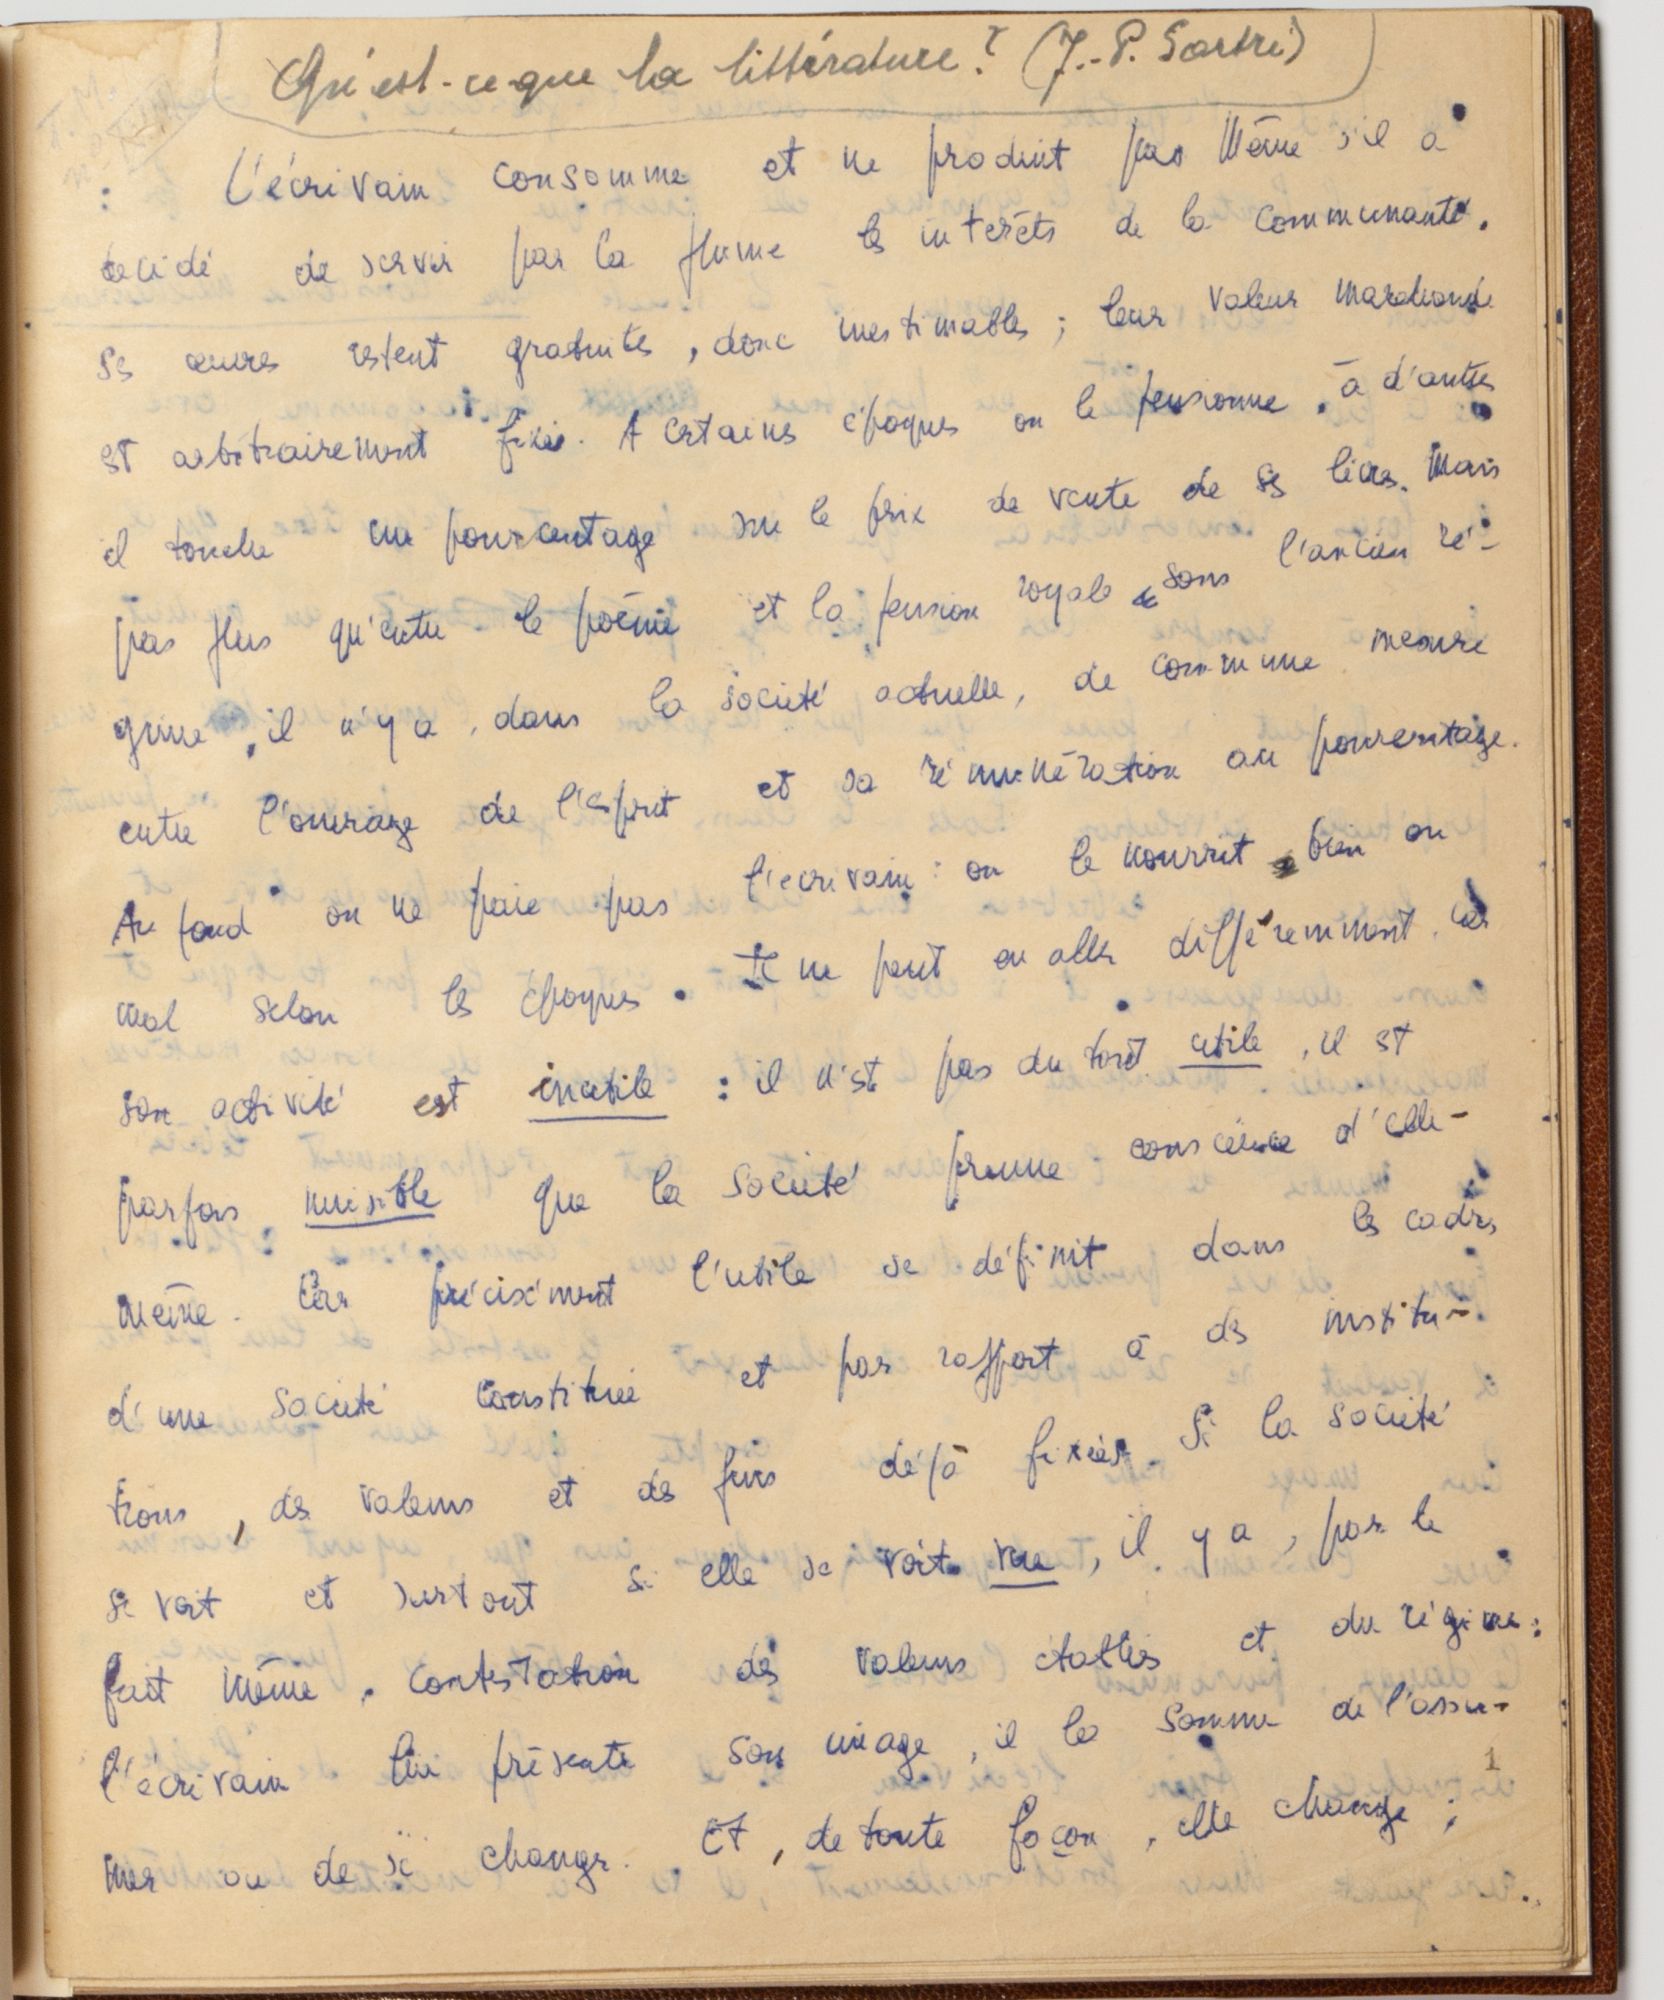 Qu'est-ce que la littérature? (J.-P. Sartre)
: L'écrivain consomme et ne produit pas même s'il a
décidé de servir par la plume les intérêts de la communauté.
Ses œuvres restent gratuites, donc inestimables ; leur valeur marchande
est arbitrairement fixée. A certaines époques on le pensionne, à d'autres
il touche un pourcentage sur le prix de vente de ses livres. Mais
pas plus qu'entre le poème et la pension royale sous l'ancien ré-
gime, il n'y a, dans la société actuelle, de commune mesure
entre l'ouvrage de l'esprit et sa rémunération au pourcentage.
Au fond on ne paie pas l'écrivain : on le nourrit, bien ou
mal selon les époques. Il ne peut en aller différemment, car
son activité est inutile : il n'est pas du tout utile, il est
parfois nuisible que la société prenne conscience d'elle-
même. Car précisément l'utile se définit dans les cadres
d'une société constituée et par rapport à des institu-
tions, des valeurs et des fins déjà fixées. Si la société
se voit et surtout si elle se voit vue, il y a, par le
fait même, contestation des valeurs établies et du régime :
l'écrivain lui présente son image, il la somme de l'assu-
mer ou de se changer. Et, de toute façon, elle change ;
1